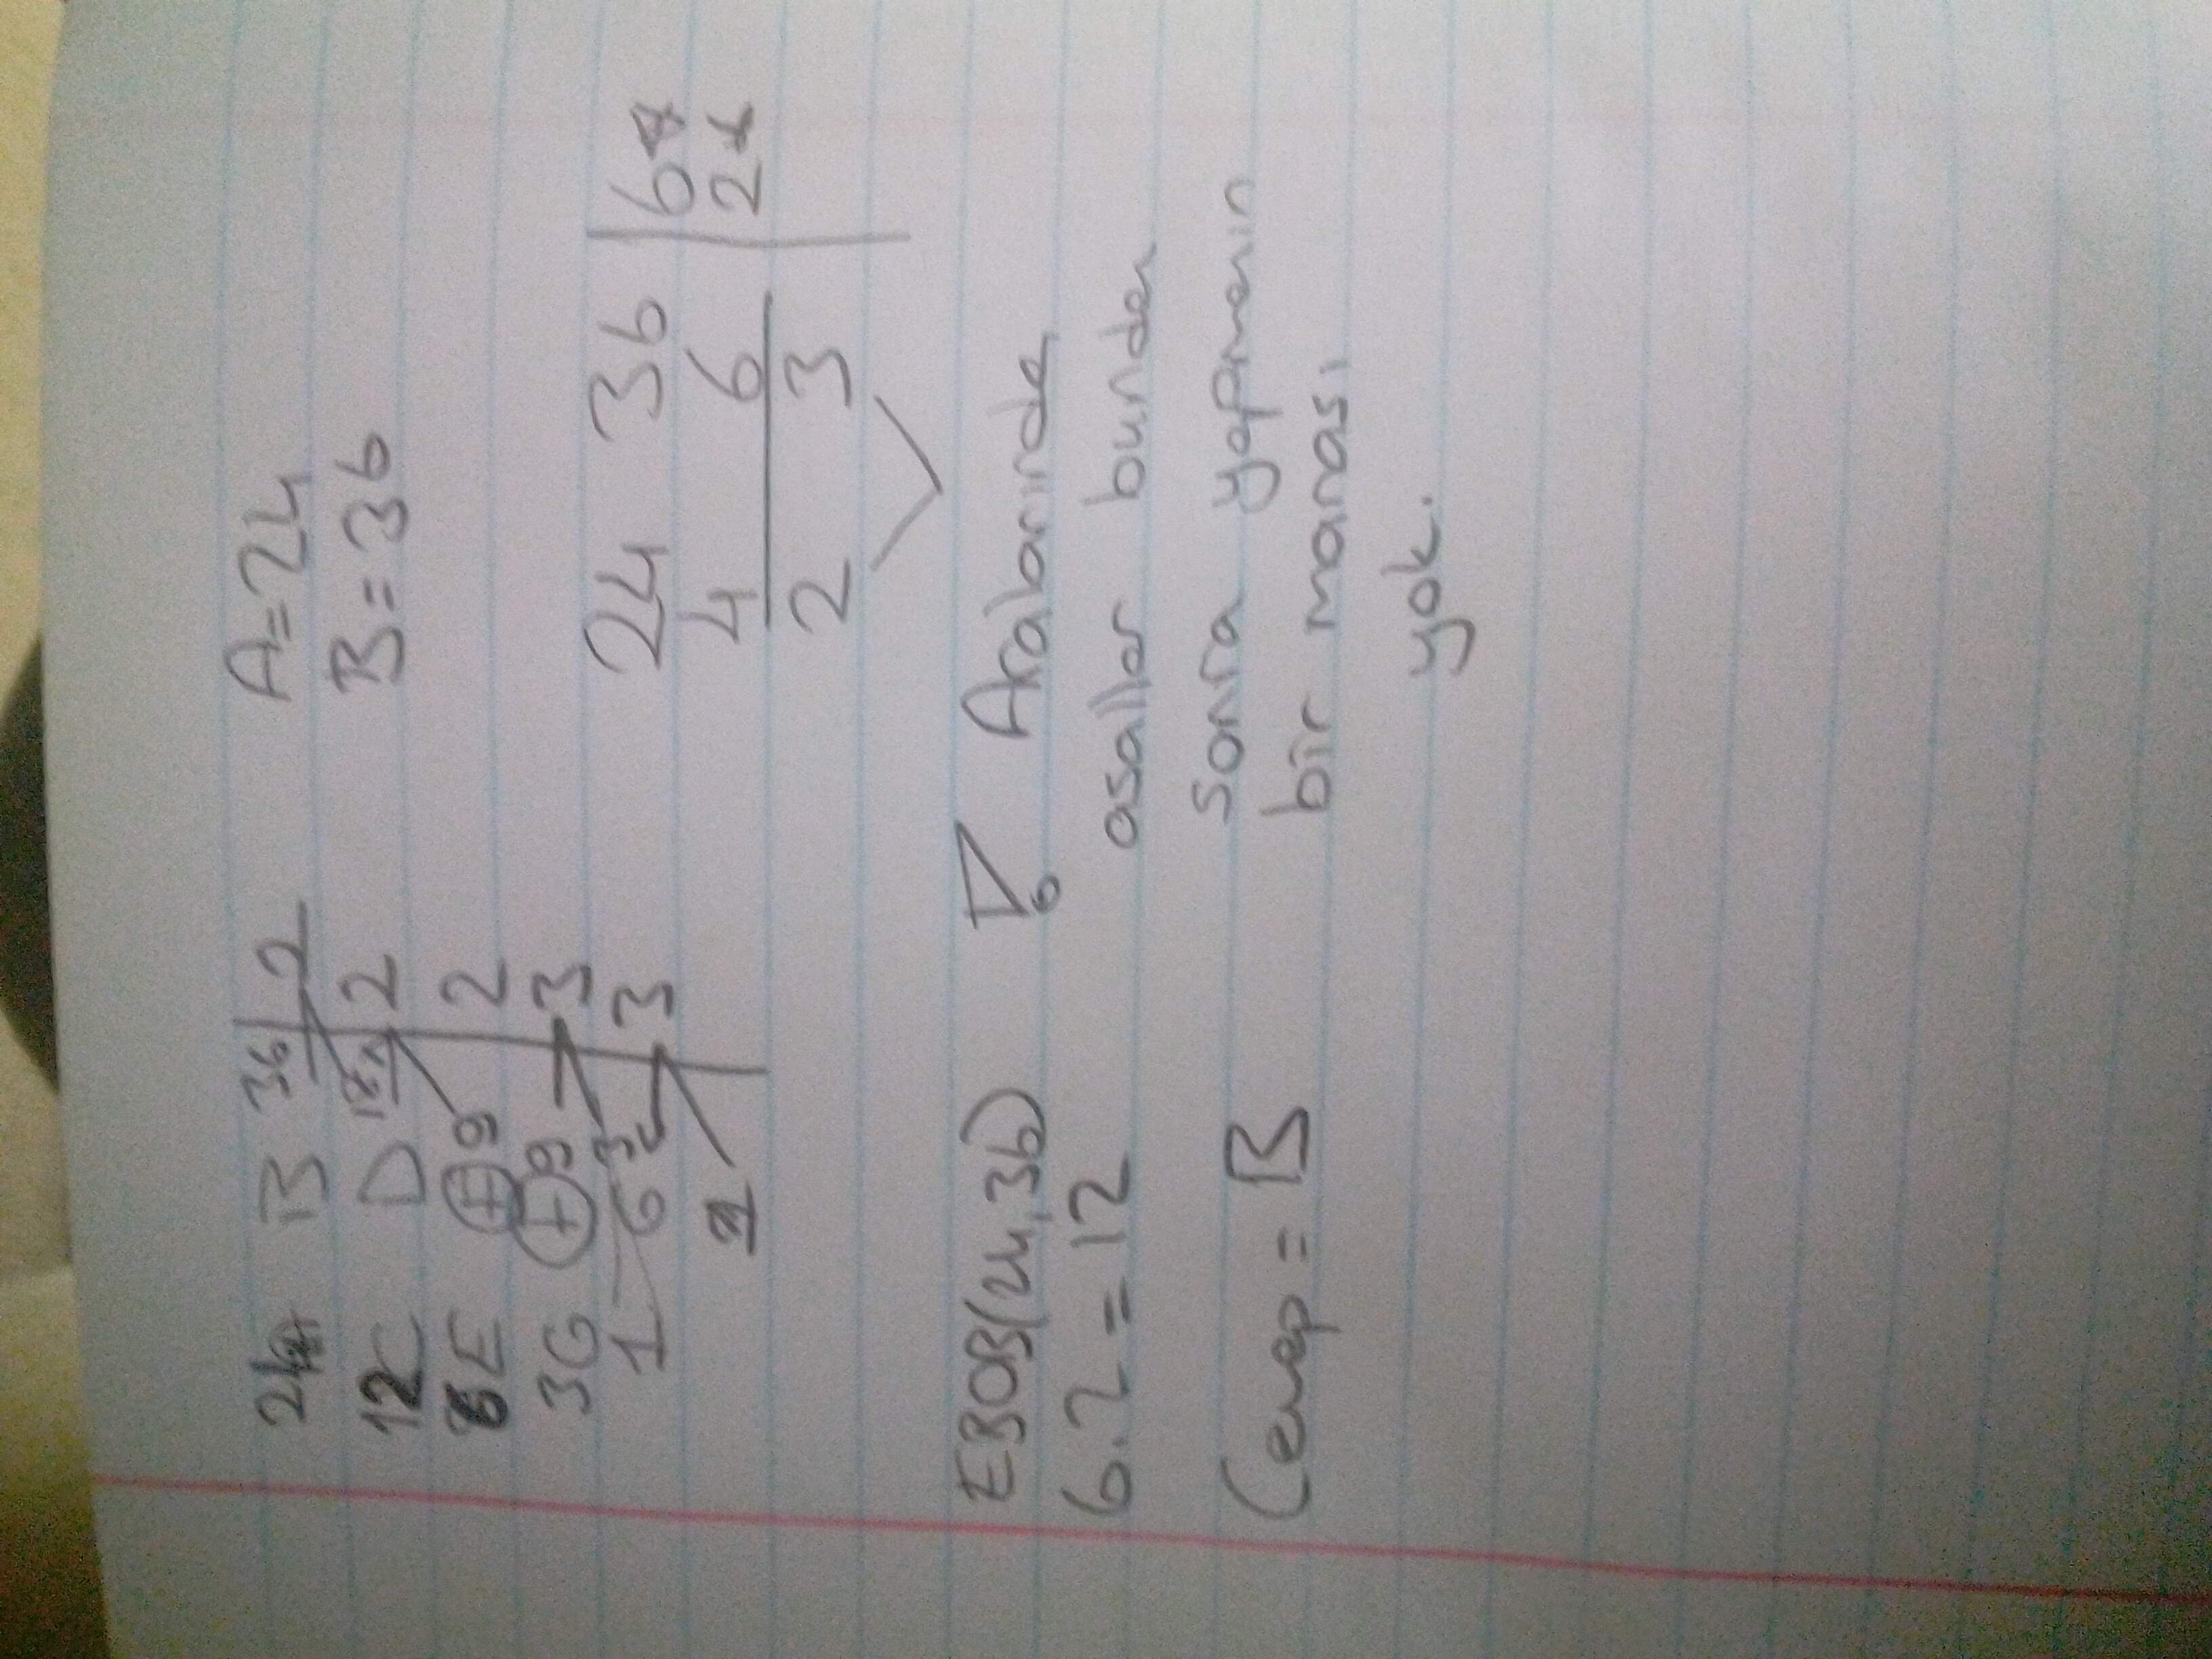 24 B 36 | 2
12 C D 18 | 2
6 E 9 | 2
3 G 9 | 3
1 3 | 3
1
A=24
B=36
24 36 | 6*
4 6 | 2*
2 3
EBOB(24,36)
6.2=12
Cevap = B
Aralarında
asallar bundan
sonra yapmanın
bir manası
yok.